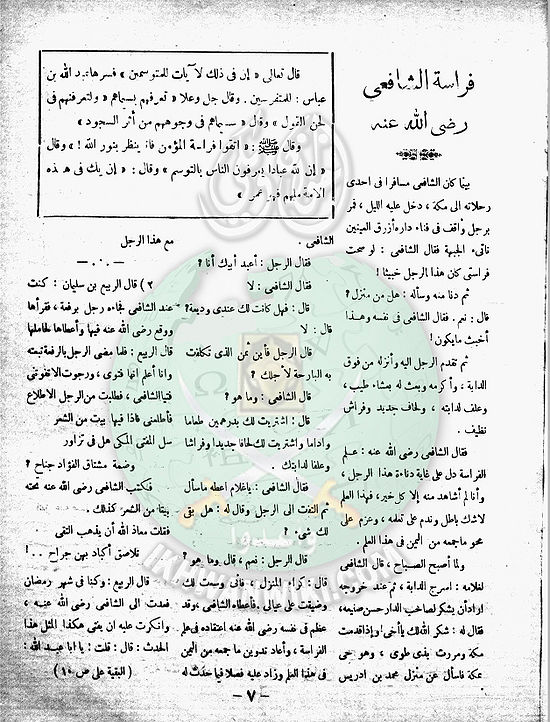 فراسة الشافعي
رضى الله عنه
قال تعالى « إن في ذلك لآيات للمتوسمين » فسرها عبد الله بن
عباس : للمتفرسين . وقال جل وعلا « تعرفهم بسيماهم » ولتعرفنهم في
لحن القول » وقال « سيماهم في وجوههم من أثر السجود »
وقال ﷺ : « اتقوا فراسة المؤمن فانه ينظر بنور الله ! » وقال
« إن لله عبادا يعرفون الناس بالتوسم » وقال : « إن يك في هذه
الامة ملهم فهو عمر »
بينا كان الشافعى مسافرا فى احدى
رحلاته الى مكة ، دخل عليه الليل ، فمر
برجل واقف فى فناء داره أزرق العينين
ناتىء الجبهة فقال الشافعى : لو صحت
فراستى كان هذا الرجل خبيثا !
ثم دنا منه وسأله : هل من منزل ؟
قال : نعم . فقال الشافعى فى نفسه وهذا
أخبث مايكون !
ثم تقدم الرجل اليه وأنزله من فوق
الدابة ، وأكرمه وبعث له بعشاء طيب ،
وعلف لدابته ، ولحاف جديد وفراش
نظيف .
فقال الشافعى رضى الله عنه : علم
الفراسة دل على غاية دناءة هذا الرجل ،
وأنا لم أشاهد منه إلا كل خير ، فهذا العلم
لاشك باطل وندم على تعلمه ، وعزم على
محو ماجمعه من اليمن فى هذا العلم .
ولما أصبح الصباح ، قال الشافعى
لغلامه : اسرج الدابة ، ثم عند خروجه
اراد أن يشكر لصاحب الدار حسن صنيعه ،
فقال له : شكر الله لك ياأخى ! إذا قدمت
مكة ومررت بذى طوى ، وهو حى
بمكة فاسأل عن منزل محمد بن ادريس
الشافعى .
فقال الرجل : أعبد أبيك أنا ؟
فقال الشافعى : لا
قال : فهل كانت لك عندى وديعة ؟
قال : لا
قال الرجل فأين ثمن الذى تكلفت
به البارحة لأجلك ؟
قال الشافعى : وما هو ؟
قال : اشتريت لك بدرهمين طعاما
واداما واشتريت لك لحافا جديدا وفراشا
وعلفا لدابتك .
فقال الشافعى : ياغلام اعطه ماسأل
ثم التفت الى الرجل وقال له : هل بقى
لك شىء ؟
قال الرجل : نعم ، قال وما هو ؟
قال : كراء المنزل ، فانى وسعت لك
وضيقت على عيالى . فأعطاه الشافعى ، وقد
عظم فى نفسه رضى الله عنه اعتقاده فى علم
الفراسة ، وأعاد تدوين ما جمعه من اليمن
فى هذا العلم وزاد عليه فصلا فيما حدث له
مع هذا الرجل
٢) قال الربيع بن سليمان : كنت
عند الشافعى فجاءه رجل برقعة ، فقرأها
ووقع رضى الله عنه فيها وأعطاها لحاملها
قال الربيع : فلما مضى الرجل بالرقعة تبعته
وانا أعلم انها فتوى ، ورجوت الا تفوتنى
فتيا الشافعى ، فطلبت من الرجل الاطلاع
فأطلعنى فاذا فيها بيت من الشعر
سل المفتى المكى هل فى تزاور
وضمة مشتاق الفؤاد جناح ؟
فكتب الشافعى رضى الله عنه تحته
بيتا من الشعر كذلك .
فقلت معاذ الله أن يذهب التقى
تلاصق أكباد بهن جراح .. !
قال الربيع : وكنا فى شهر رمضان
فعدت الى الشافعى رضى الله عنه ،
وانكرت عليه ان يفتى هكذا المثل هذا
الحدث : قال : قلت : يا ابا عبد الله :
( البقية على ص ١٠ )
— ٧ —